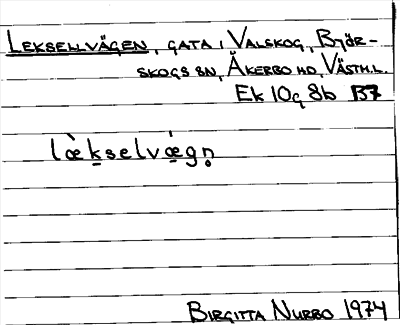 LEKSELLVÄGEN, GATA I VALSKOG, BJÖR-
SKOGS SN, ÅKERBO HD, VÄSTML.
EK 10g 8b B7
læ̀k̠selvǽ̠gn̥
BIRGITTA NURBO 1974